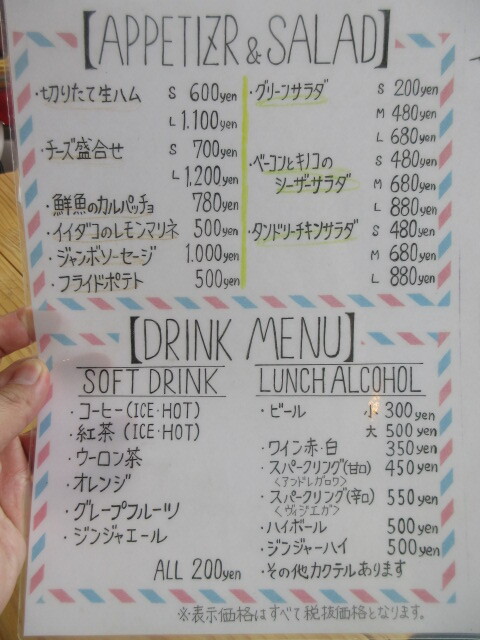 【APPETIZR & SALAD】
・切りたて生ハム S 600yen
L 1.100yen
・チーズ盛合せ S 700yen
L 1,200yen
・鮮魚のカルパッチョ 780yen
・イイダコのレモンマリネ 500yen
・ジャンボソーセージ 1.000yen
・フライドポテト 500yen
・グリーンサラダ S 200yen
M 480yen
L 680yen
・ベーコンとキノコの S 480yen
シーザーサラダ M 680yen
L 880yen
・タンドリーチキンサラダ S 480yen
M 680yen
L 880yen
【DRINK MENU】
SOFT DRINK
・コーヒー(ICE・HOT)
・紅茶(ICE・HOT)
・ウーロン茶
・オレンジ
・グレープフルーツ
・ジンジャエール
ALL 200yen
LUNCH ALCOHOL
・ビール 小 300yen
大 500yen
・ワイン赤・白 350yen
・スパークリング(甘口) 450yen
<アンドレガロワ>
・スパークリング(辛口) 550yen
<ヴィジエガ>
・ハイボール 500yen
・ジンジャーハイ 500yen
・その他カクテルあります
※表示価格はすべて税抜価格となります。